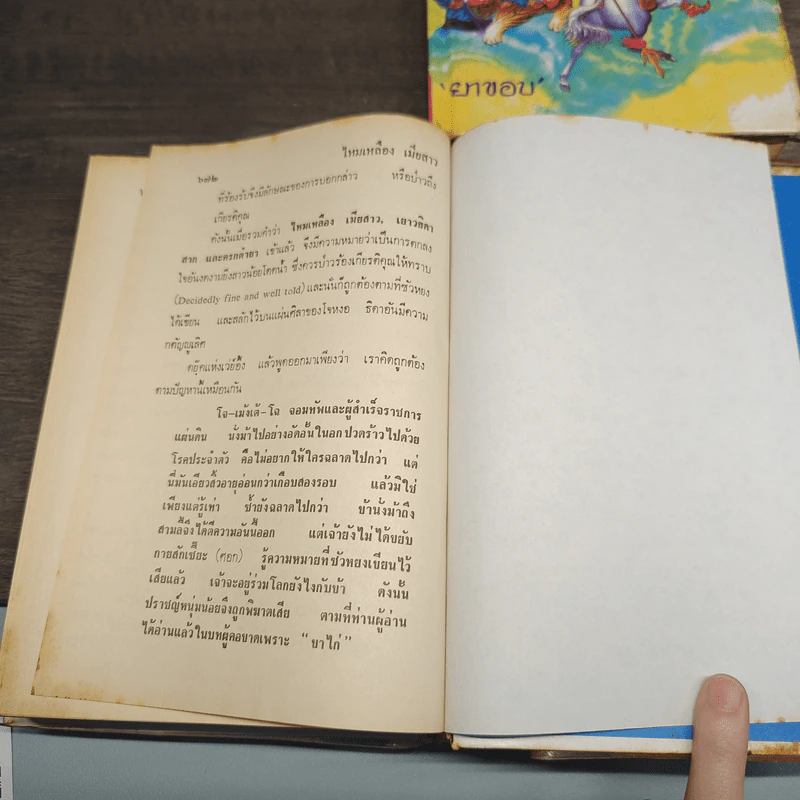 'ยาขอบ'
ไหมเหลือง เมียสาว
๖๗๒
ที่ร้องรับจึงมีลักษณะของการบอกกล่าว หรือป่าวถึง
เกียรติคุณ
ดังนั้นเมื่อรวมคำว่า ไหมเหลือง เมียสาว, เยาวธิดา
สาก และครกตำยา เข้าแล้ว จึงมีความหมายว่าเป็นการตกลง
ใจอันงดงามยิ่งสาวน้อยโดดน้ำ ซึ่งควรป่าวร้องเกียรติคุณให้ทราบ
(Decidedly fine and well told) และนั่นก็ถูกต้องตามที่ซัวหยง
ได้เขียน และสลักไว้บนแผ่นศิลาของโจหงอ ธิดาอันมีความ
กตัญญูเลิศ
ตยุ๊คแห่งเว่ย์อึ้ง แล้วพูดออกมาเพียงว่า เราคิดถูกต้อง
ตามปัญหานี้เหมือนกัน
โจ-เม้งเต้-โฉ จอมทัพและผู้สำเร็จราชการ
แผ่นดิน นั่งม้าไปอย่างอัดอั้นในอกปวดร้าวไปด้วย
โรคประจำตัว คือไม่อยากให้ใครฉลาดไปกว่า แต่
นี่มันเอียวสิ้วอายุอ่อนกว่าเกือบสองรอบ แล้วมิใช่
เพียงแต่รู้เท่า ซ้ำยังฉลาดไปกว่า ข้านั่งม้าถึง
สามลี้จึงได้ตีความอันนี้ออก แต่เจ้ายังไม่ได้ขยับ
กายสักเชี๊ยะ (ศอก) รู้ความหมายที่ซัวหยงเขียนไว้
เสียแล้ว เจ้าจะอยู่ร่วมโลกยังไงกับข้า ดังนั้น
ปราชญ์หนุ่มน้อยจึงถูกพิฆาตเสีย ตามที่ท่านผู้อ่าน
ได้อ่านแล้วในบทผู้คอขาดเพราะ "ขาไก่"